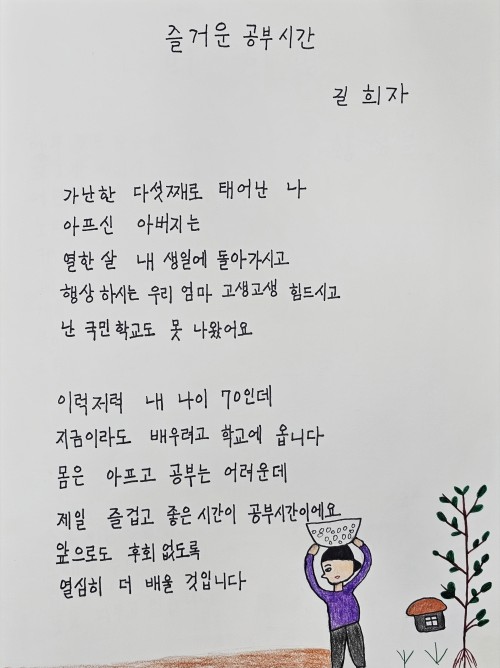 즐거운 공부시간
길 희자
가난한 다섯째로 태어난 나
아프신 아버지는
열한살 내 생일에 돌아가시고
행상 하시는 우리 엄마 고생고생 힘드시고
난 국민학교도 못 나왔어요
이럭저럭 내 나이 70인데
지금이라도 배우려고 학교에 옵니다
몸은 아프고 공부는 어려운데
제일 즐겁고 좋은 시간이 공부시간이에요
앞으로도 후회 없도록
열심히 더 배울 것입니다